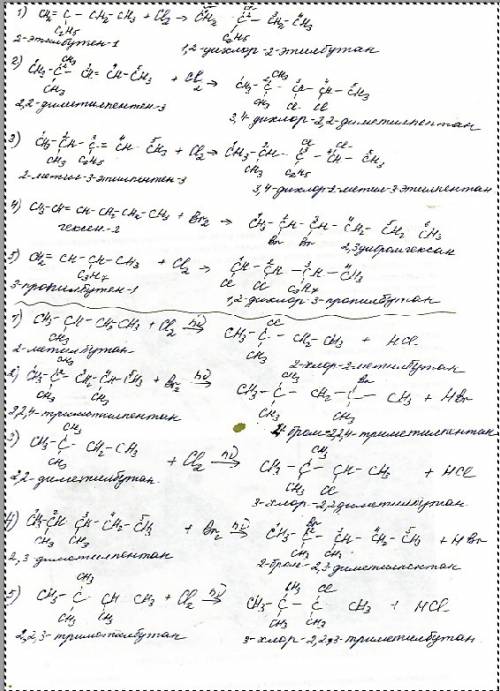 1) CH2 = C - CH2 - CH3 + Cl2 → CH2 - C - CH2 - CH3
Cl Cl
C2H5 C2H5
2-этилбутен-1 1,2-дихлор-2-этилбутан
2) CH3 - C - CH = CH - CH3 + Cl2 → CH3 - C - CH - CH - CH3
CH3 CH3
CH3 CH3 Cl Cl
2,2-диметилпентен-3 3,4-дихлор-2,2-диметилпентан
3) CH3 - CH - C = CH - CH3 + Cl2 → CH3 - CH - C - CH - CH3
Cl Cl
CH3 C2H5 CH3 C2H5
2-метил-3-этилпентен-3 3,4-дихлор-2-метил-3-этилпентан
4) CH3 - CH = CH - CH2 - CH2 - CH3 + Br2 → CH3 - CH - CH - CH2 - CH2 - CH3
Br Br
гексен-2 2,3 дибромгексан
5) CH2 = CH - CH - CH3 + Cl2 → CH - CH - CH - CH3
C3H7 Cl Cl C3H7
3-пропилбутен-1 1,2-дихлор-3-пропилбутан
1) CH3 - CH - CH2 - CH3 + Cl2 hν → CH3 - C - CH2 - CH3 + HCl
Cl
CH3 CH3
2-метилбутан 2-хлор-2-метилбутан
2) CH3 - C - CH2 - CH - CH3 + Br2 hν → CH3 - C - CH2 - C - CH3 + HBr
CH3 CH3 Br
CH3 CH3 CH3 CH3
2,2,4-триметилпентан 4-бром-2,2,4-триметилпентан
3) CH3 - C - CH2 - CH3 + Cl2 hν → CH3 - C - CH - CH3 + HCl
CH3 CH3
CH3 CH3 Cl
2,2-диметилбутан 3-хлор-2,2-диметилбутан
4) CH3 - CH - CH - CH2 - CH3 + Br2 hν → CH3 - C - CH - CH2 - CH3 + HBr
Br
CH3 CH3 CH3 CH3
2,3 диметилпентан 2-бром-2,3-диметилпентан
5) CH3 - C - CH CH3 + Cl2 hν → CH3 - C - C CH3 + HCl
CH3 CH3 Cl
CH3 CH3 CH3 CH3
2,2,3-триметилбутан 3-хлор-2,2,3-триметилбутан